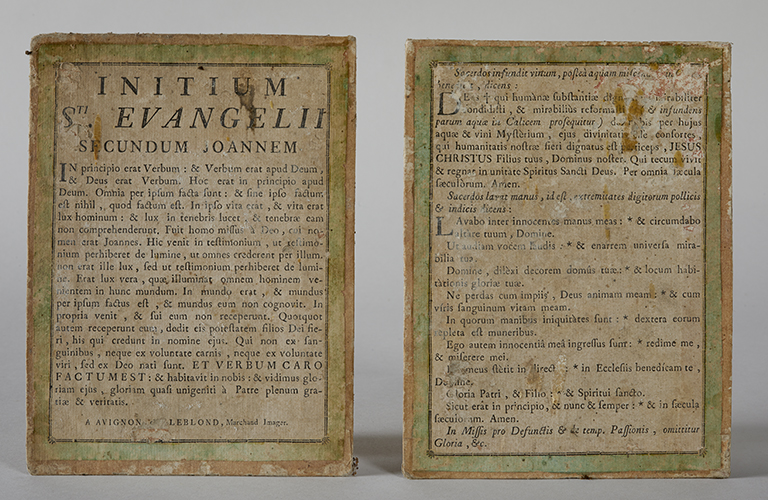 INITIUM
S.TI EVANGELII
SECUNDUM JOANNEM
IN principio erat Verbum : & Verbum erat apud Deum,
& Deus erat Verbum. Hoc erat in principio apud
Deum. Omnia per ipsum facta sunt : & sine ipso factum
est nihil, quod factum est. In ipso vita erat, & vita erat
lux hominum : & lux in tenebris lucet, & tenebræ eam
non comprehenderunt. Fuit homo missus à Deo, cui no-
men erat Joannes. Hic venit in testimonium, ut testimo-
nium perhiberet de lumine, ut omnes crederent per illum.
non erat ille lux, sed ut testimonium perhiberet de lumi-
ne. Erat lux vera, quæ illuminat omnem hominem ve-
nientem in hunc mundum. In mundo erat, & mundus
per ipsum factus est, & mundus eum non cognovit. In
propria venit, & sui eum non receperunt. Quotquot
autem receperunt eum, dedit eis potestatem filios Dei fie-
ri, his qui credunt in nomine ejus. Qui non ex san-
guinibus, neque ex voluntate carnis, neque ex voluntate
viri, sed ex Deo nati sunt. ET VERBUM CARO
FACTUM EST : & habitavit in nobis : & vidimus glo-
riam ejus, gloriam quasi unigeniti à Patre plenum gra-
tiæ & veritatis.
A AVIGNON LEBLOND, Marchand Imager.
Sacerdos infundit vinum, posteà aquam
dicens :
DEus ✝ qui humanæ substantiæ mirabiliter
condidisti, & mirabiliùs reformasti & infundens
parum aquæ in Calicem prosequitur ) da per hujus
aquæ & vini Mysterium, ejus divinitatis esse consortes,
qui humanitatis nostræ fieri dignatus est particeps, JESUS
CHRISTUS Filius tuus, Dominus noster. Qui tecum vivit
& regnat in unitate Spiritus Sancti Deus. Per omnia sæcula
sæculorum. Amen.
Sacerdos lavat manus, id est, extremitates digitorum pollicis
& indicis dicens :
LAvabo inter innocentes manus meas : * & circumdabo
altare tuum, Domine.
Ut audiam vocem laudis : * & enarrem universa mira-
bilia tua.
Domine, dilexi decorem domûs tuæ : * & locum habi-
tationis gloriæ tuæ.
Ne perdas cum impiis, Deus animam meam : * & cum
viris sanguinum vitam meam.
In quorum manibus iniquitates sunt : * dextera eorum
repleta est muneribus.
Ego autem innocentiâ meâ ingressus sum : * redime me,
& miserere mei.
Pes meus stetit in directo : * in Ecclesiis benedicam te,
Domine.
Gloria Patri, & Filio : * & Spiritui sancto.
Sicut erat in principio, & nunc & semper : * & in sæcula
sæculorum. Amen.
In Missis pro Defunctis & de temp. Passionis, omittitur
Gloria, &c.